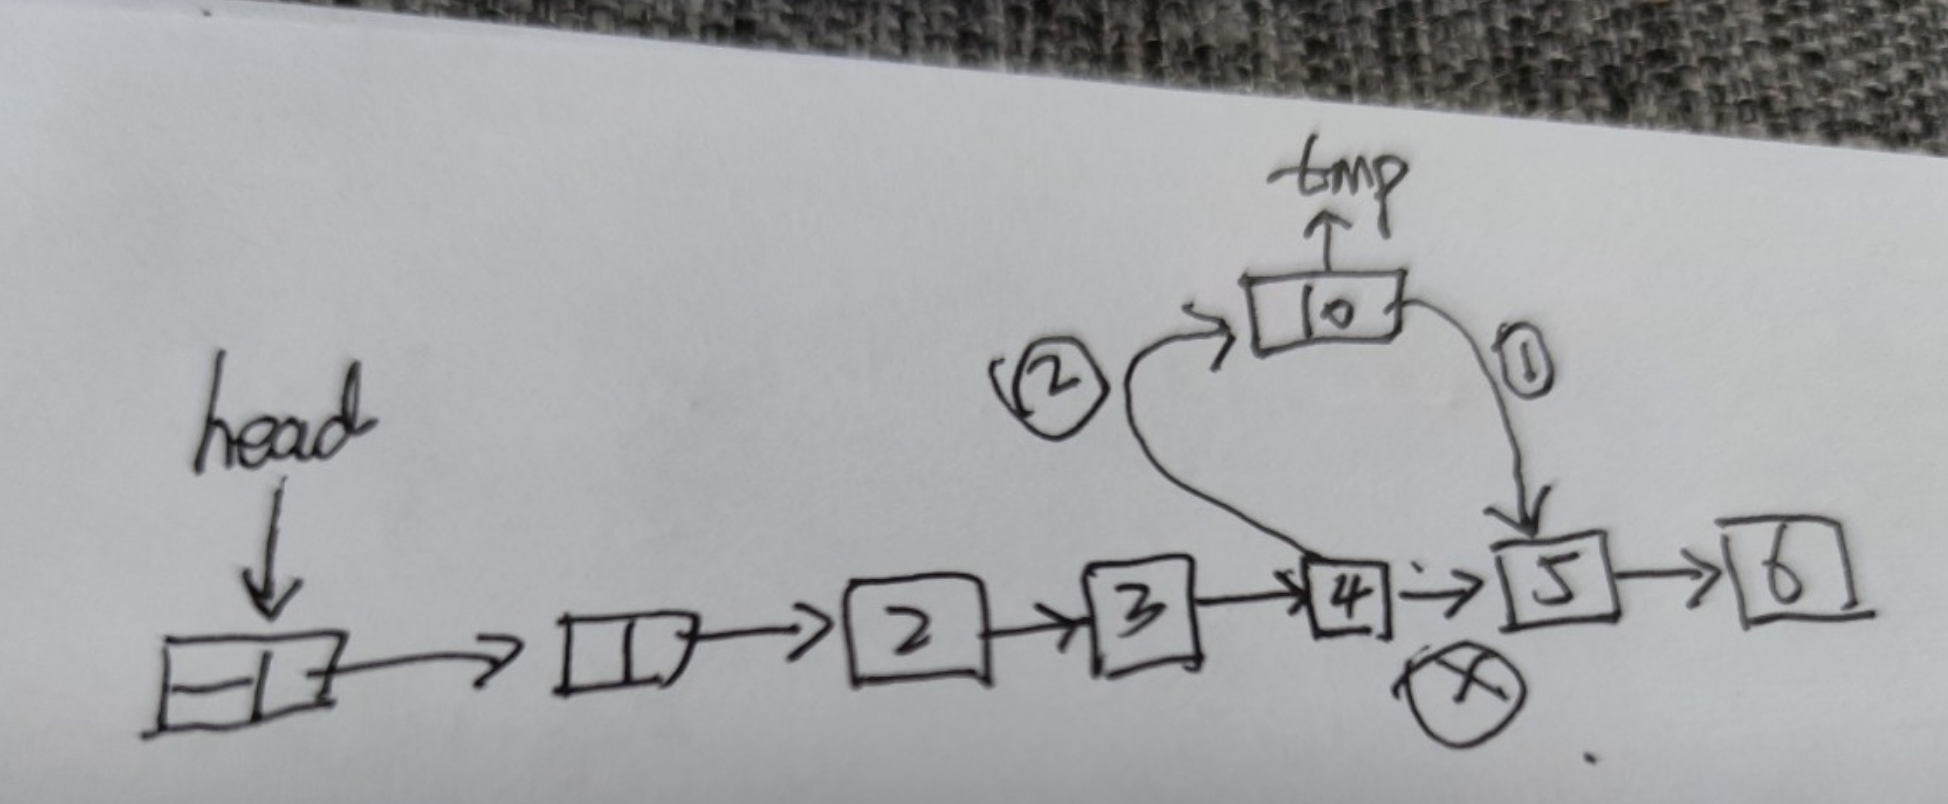 tmp
0
② ①
head
1 2 3 4 5 6